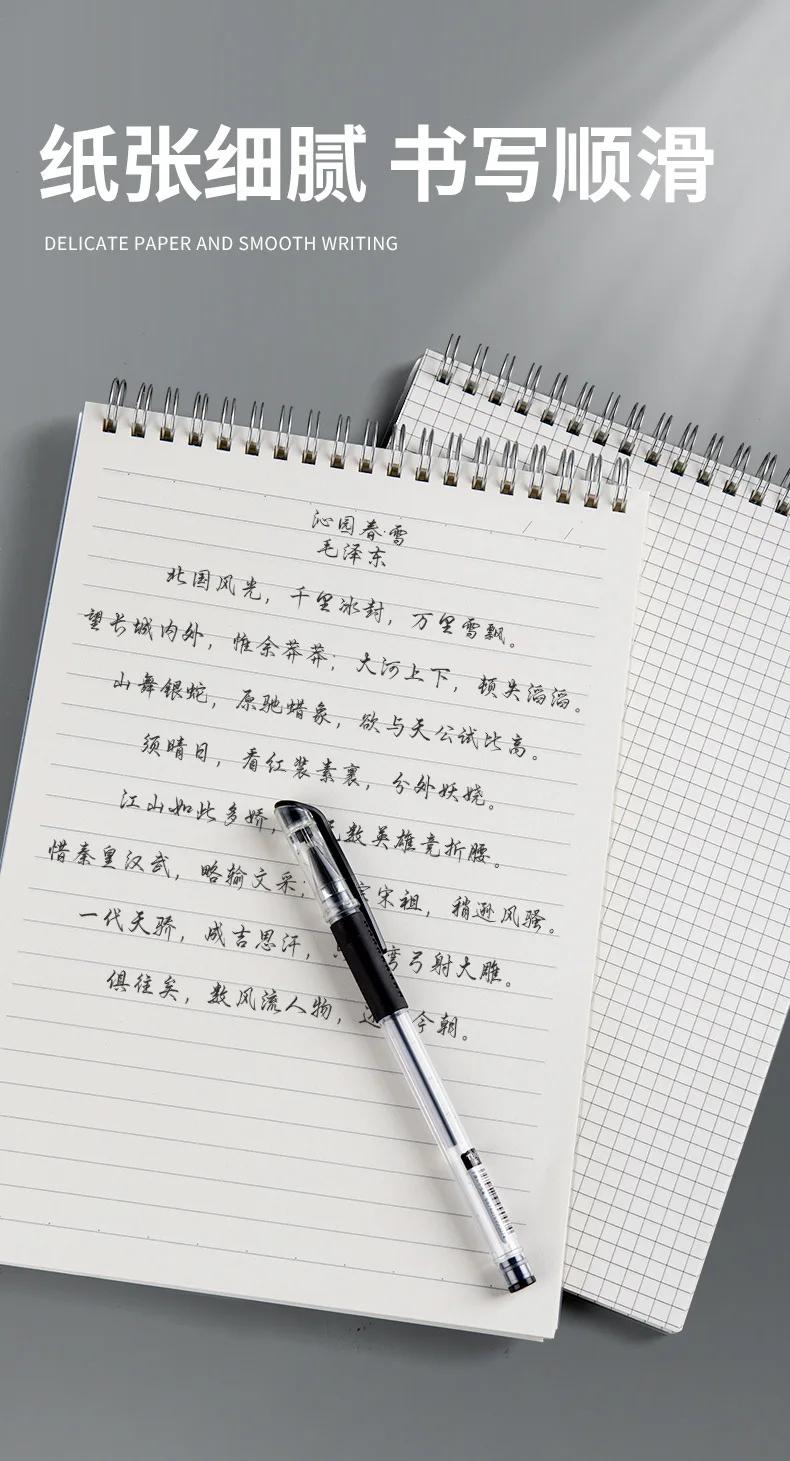 纸张细腻 书写顺滑
DELICATE PAPER AND SMOOTH WRITING
沁园春·雪
毛泽东
北国风光，千里冰封，万里雪飘。
望长城内外，惟余莽莽；大河上下，顿失滔滔。
山舞银蛇，原驰蜡象，欲与天公试比高。
须晴日，看红装素裹，分外妖娆。
江山如此多娇，无数英雄竞折腰。
惜秦皇汉武，略输文采；宗宋祖，稍逊风骚。
一代天骄，成吉思汗，弯弓射大雕。
俱往矣，数风流人物，还今朝。